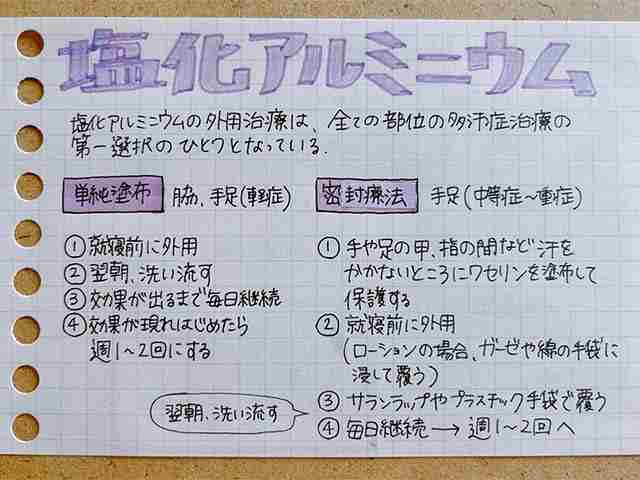 塩化アルミニウム
塩化アルミニウムの外用治療は、全ての部位の多汗症治療の
第一選択のひとつとなっている.
単純塗布 脇、手足(軽症)
①就寝前に外用
②翌朝、洗い流す
③効果が出るまで毎日継続
④効果が現れはじめたら
週1〜2回にする
密封療法 手足(中等症〜重症)
①手や足の甲、指の間など汗を
かかないところにワセリンを塗布して
保護する
②就寝前に外用
(ローションの場合、ガーゼや綿の手袋に
浸して覆う)
③サランラップやプラスチック手袋で覆う
翌朝、洗い流す
④毎日継続→週1〜2回へ